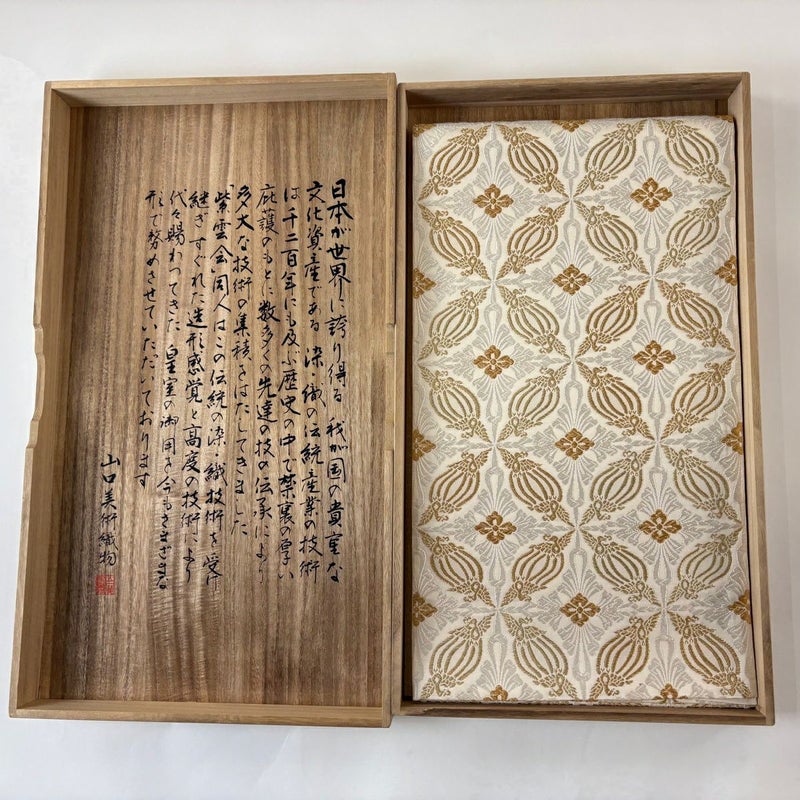 日本が世界に誇り得る 我が国の貴重な
文化資産である 染・織の伝統産業の技術
は 千二百年にも及ぶ歴史の中で禁裏の厚い
庇護のもとに 数多くの先達の技の伝承により
多大な技術の集積をはたしてきました
「紫雲会」同人はこの伝統の染・織技術を受け
継ぎ すぐれた造形感覚と高度の技術により
代々賜わってきた 皇室の御用を今もさまざまな
形で努めさせていただいております
山口美術織物